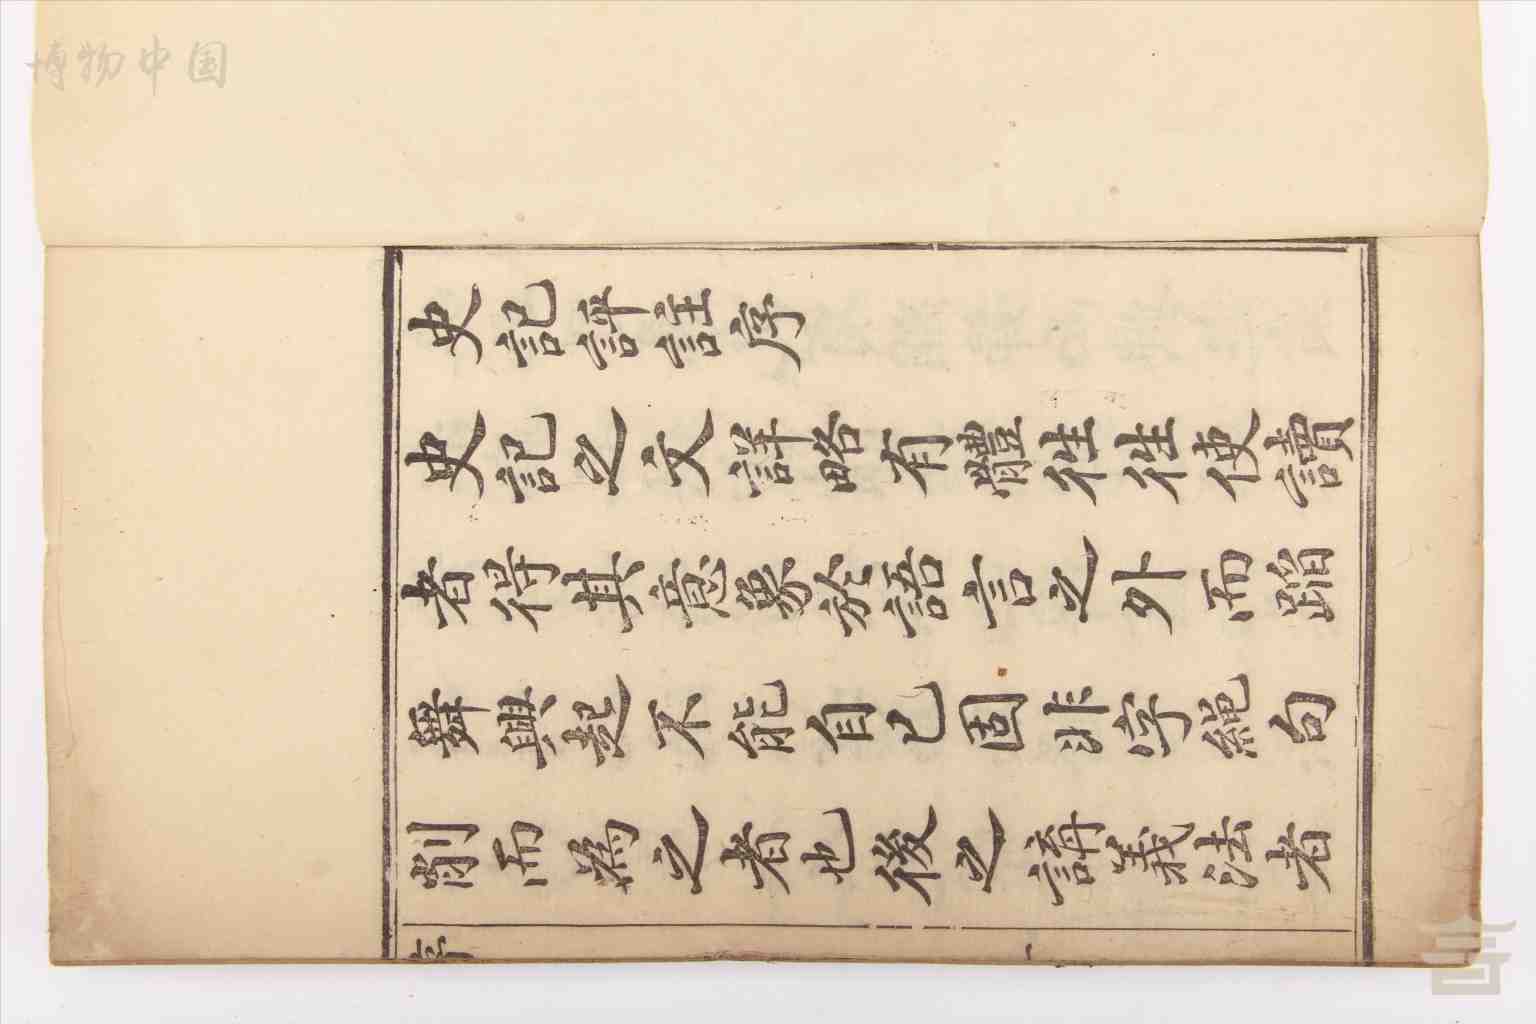 史記評註序
史記之文詳略有體往往使讀
者得其意象於語言之外而蹈
舞興起不能自已固非字繩句
削而為之者也後之講義法者
序
一
博物中国